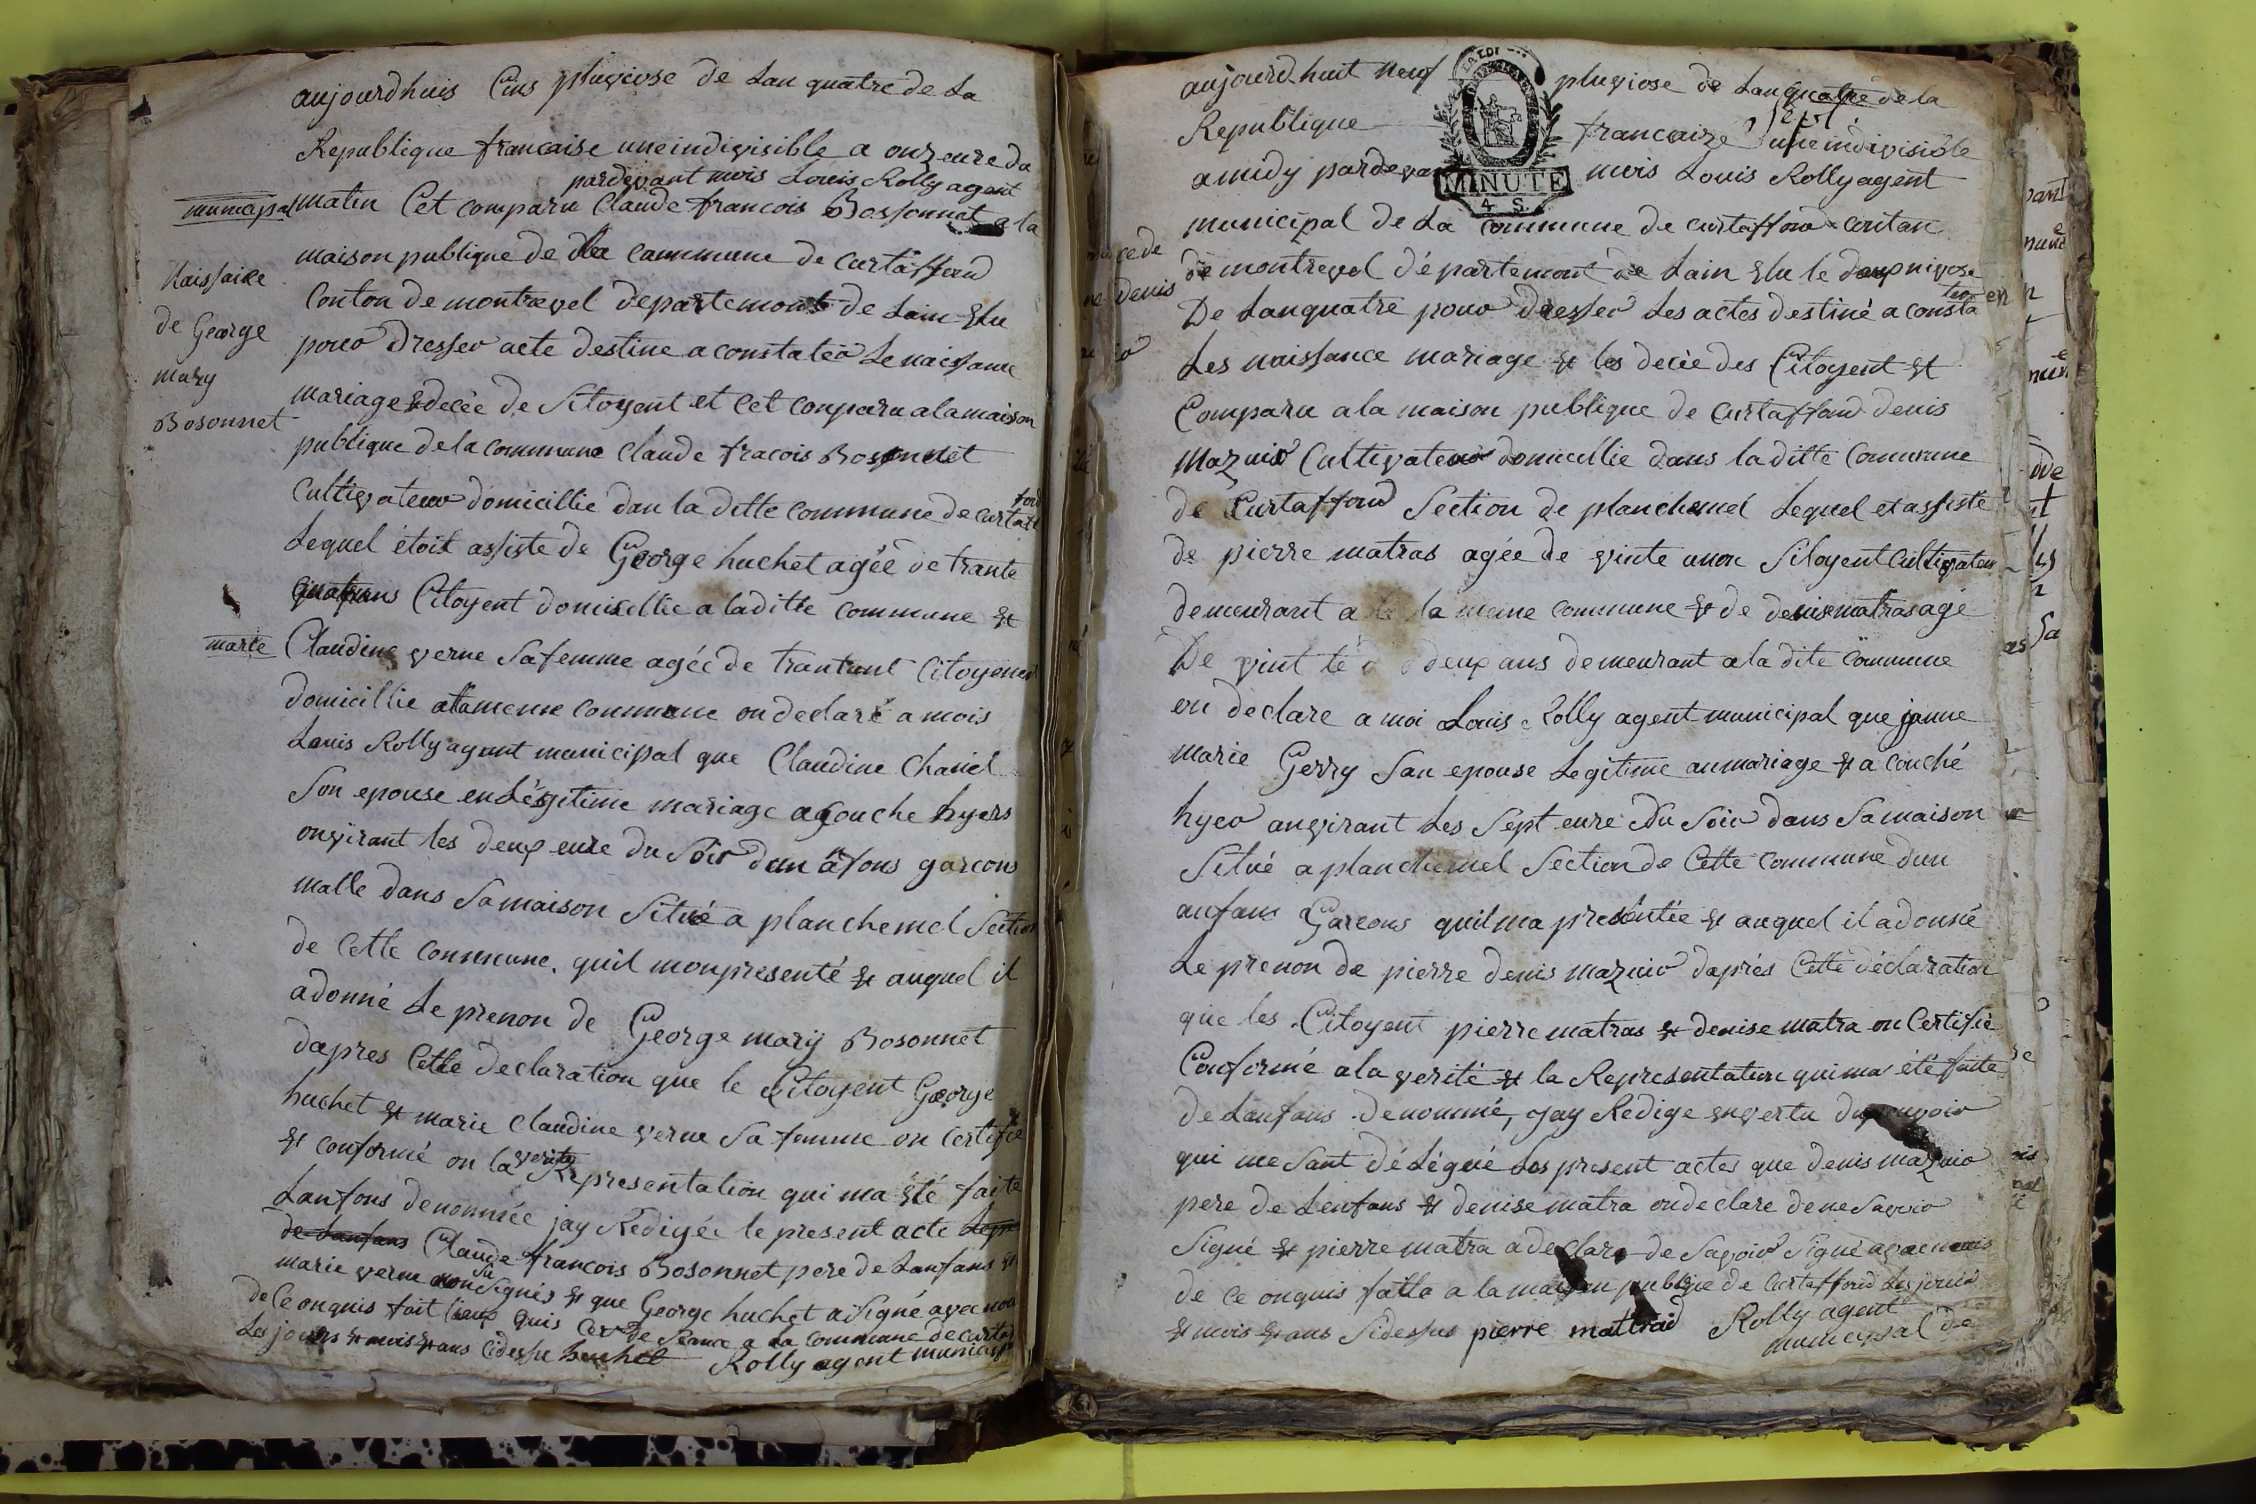 aujourdhuis Cins pluviose de Lan quatre de La
Republique francaise une indivisible a onzeure du
pardevant mois Louis Rolly agent
municipal matin Cet comparu Claude francois Bossonnat a la
maison publique de la Commune de Curtaffond
Conton de montrevel departement de Lain Elu
pour Dresser acte destine a constater Le naissanne
mariage & decée de Sitoyent et Cet conparu a la maison
publique de la commune Claude fracois Bosonnet
Cultivateur domicillie dan la ditte commune de curtaf
fond
Lequel étoit assiste de George huchet agée de trante
quatrans Citoyent domicillie a la ditte commune &
marie Claudine verne Sa femme agée de trantunt Citoyenne
domicillie a la meme commune on declaré a mois
Louis Rolly agant municipal que Claudine Chanel
Son epouse en Légitime mariage a couche hyers
onvirant les deux eure du Soir dun anfons garcons
malle dans Sa maison Situé a planchemel Section
de Cette commune. quil mon presenté & auquel il
a donné Le prenon de George mary Bosonnet
dapres Cette declaration que le Citoyent George
huchet & marie Claudine verne Sa fomme on Certifie
& conformé on la verite Representation qui ma été faite
Lanfons denommée jay Redigée le present acte
de Lanfans Claude francois Bosonnet pere de Lanfans &
marie verne non Su Signés & que George huchet a Signé avec moi
de Ce onquis fait Seance a la Commune de Curtaf
Les jours & mois & ans Cidessu huchet Rolly agent municip
Naissaike
de George
mary
Bosonnet
aujourd huit neuf pluviose de Lan quatre de la
Republique francaize une indivisible
a midy pardeva mois Louis Rolly agent
MINUTE
4 S.
municipal de La commune de curtaffond contan
de montrevel département de Lain Elu le deux nivose
De Lanquatre pour dresser Les actes destiné a consta
ter
Les naissance mariage & les decée des Citoyent &
Comparu a la maison publique de Curtaffond denis
Mazuir Cultivateur domicillie dans la ditte Commune
de Curtaffond Section de planchemel Lequel et assiste
de pierre matras agée de vinte unon Sitoyent Cultivateur
demeurant a la meme commune & de denise matras agé
De vint te deux ans demeurant a la dite commune
on declare a moi Louis Rolly agent municipal que janne
marie Gerry San epouse Legitime an mariage & a couché
hyer anvirant Les Sept eure du Soir dans Sa maison
Situé a planchemel Section de Cette commune dun
anfans Garcons quil ma presentée & auquel il a donné
Le prenon de pierre denis mazuir daprès Cette déclaration
que les Citoyent pierre matras & denise matra on Certifié
Conformé a la verité & la Representation qui ma été faite
de Lanfans denommé, jay Redige en vertu du pouvoir
qui me Sant dé Légué Les present actes que denis mazuir
pere de Lenfans & denise matra on declare de ne Savoir
Signé & pierre matra a declare de Savoir Signé avec mois
de Ce onquis fatte a la maison publique de Curtaffond Les jours
& mois & ans Sidessus pierre mattrad Rolly agent
municipal de